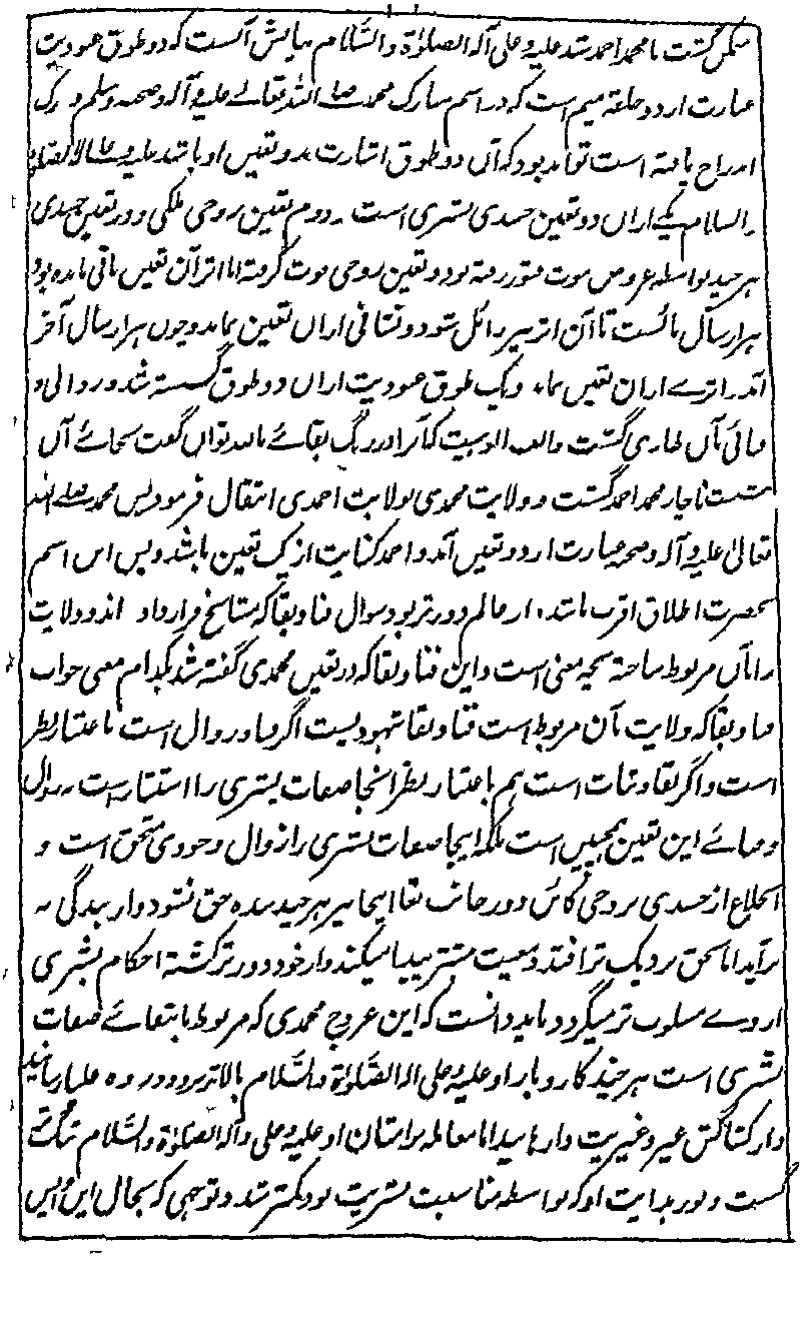 ممکن گشت تا محمد احمد شد علیه و علی آله الصلوٰة والسلام بیانش آنست که دو طوق عبودیت
عبارت از دو حلقه میم است که در اسم مبارک محمد صلے اللہ تعالےٰ علیه و آله وصحبه وسلم
اندراج یافته است تواند بود که آن دو طوق اشارت بدو تعین او باشد علیه و علےٰ آله الصلوٰة
والسلام یکے ازان دو تعین جسدی بشری است و دوم تعین روحی ملکی و در تعین جسدی
هر چند بواسطه عروض موت فتور رفته بود و تعین روحی قوت گرفته اما اثر آن تعین باقی مانده بود
هزار سال بائست تا آن اثر نیز زائل شود و نشانی ازان تعین نماند و چون هزار سال آخر
آمد و اثرے ازان تعین نماند و یک طوق عبودیت ازان دو طوق گسسته شد و زوالی و
فنائی بآن طاری گشت و الف الوهیت که آنرا در رنگ بقائے بالله توان گفت بجائے آن
نشست ناچار محمد احمد گشت و ولایت محمدی بولایت احمدی انتقال فرمود پس محمد صلے اللہ
تعالیٰ علیه و آله وصحبه عبارت از دو تعین آمد و احمد کنایت از یک تعین باشد و بس این اسم
بحضرت اطلاق اقرب باشد، از عالم دورتر بود سوال فنا و بقا که مشایخ قرار داده اند و ولایت
را بآن مربوط ساخته بچه معنی است و این فنا و بقا که در تعین محمدی گفته شد بکدام معنی جواب
فنا و بقا که ولایت بآن مربوط است فنا و بقا شهودیست اگر فنا و زوال است باعتبار نظر
است و اگر بقا و ثبات است هم باعتبار نظر آنجا صفات بشری را استتار است نه زوال
و فنائے این تعین نچنین است بلکه اینجا صفات بشری را زوال وجودی متحقق است و
انخلاع از جسدی بروحی کائن و در جانب بقا اینجا نیز هر چند بنده حق نشود و از بندگی نه
برآید اما بحق نزدیک تر افتد و معیت بیشتر پیدا میکند و از خود دور تر گشته احکام بشری
از وے مسلوب تر میگردد باید دانست که این عروج محمدی که مربوط بانتفائے صفات
بشری است هر چند کاروبار او علیه و علی آله الصلوٰة والسلام بالاتر برد و در وه علیا رسانید
و از کشاکش غیر و غیریت وا رهانید اما معامله بر امتان او علیه و علی آله الصلوٰة والسلام تنگ تر
گشت و نور هدایت او که بواسطه مناسبت بشریت بود کمتر شد و توجهی که بحال این پس